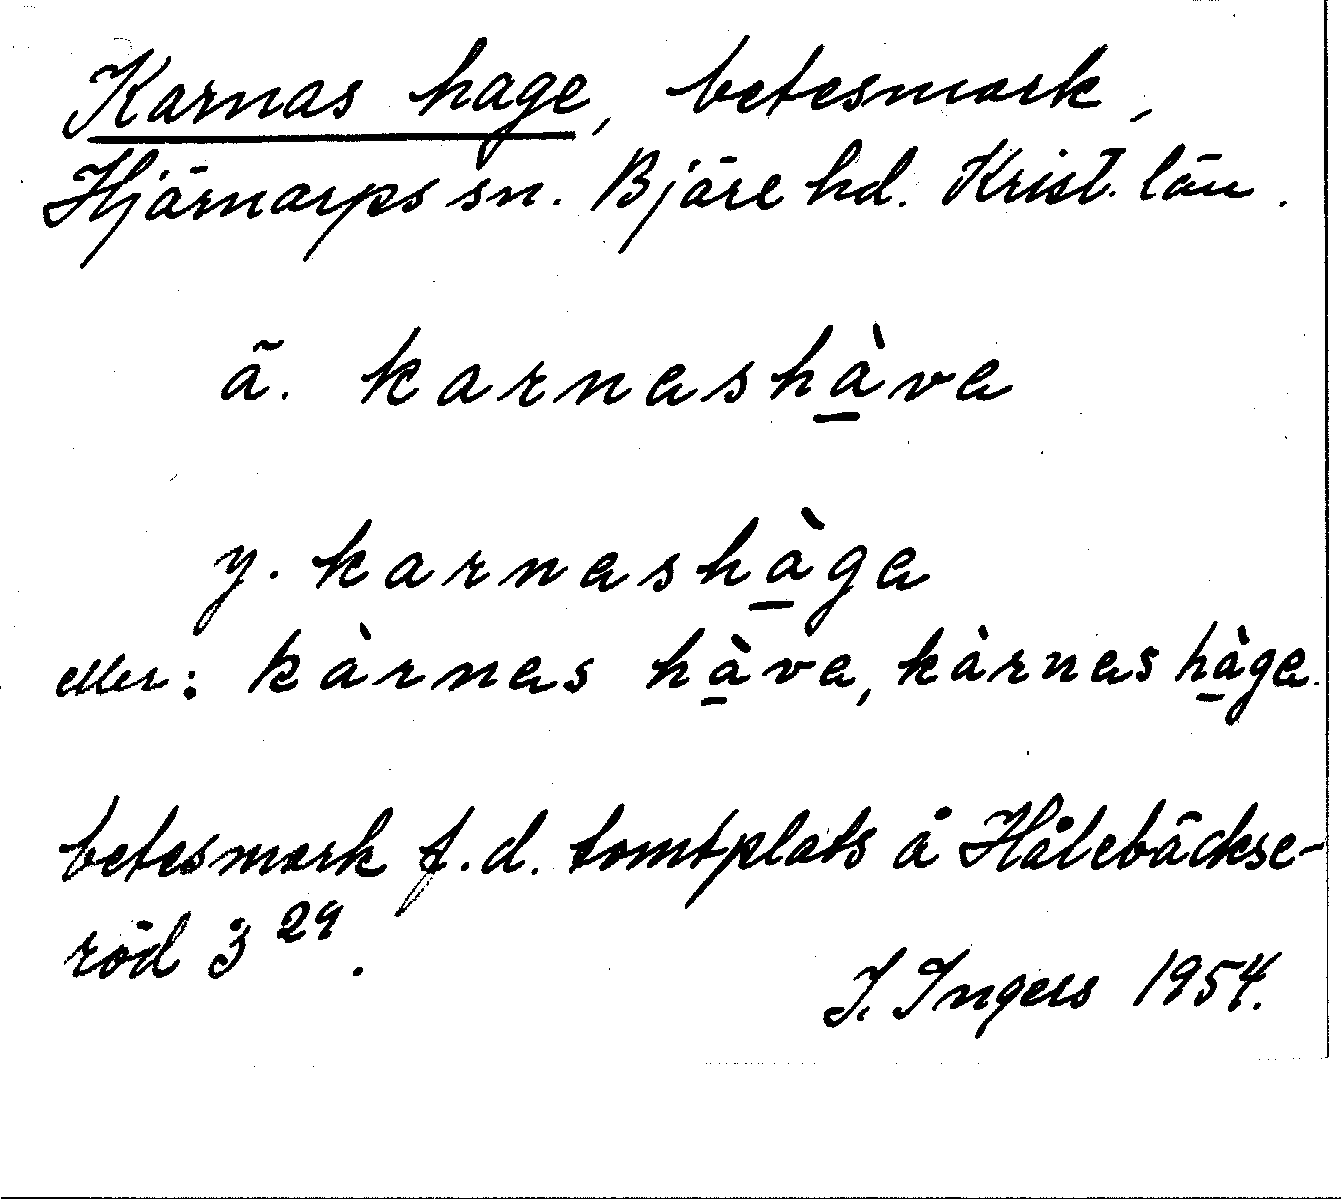 Karnas hage, betesmark,
Hjärnarps sn. Bjäre hd. Krist. län.
ä. karnashàva
y. karnashàga
eller: kàrnas hàva, kàrnas hàga.
betesmark f.d. tomtplats å Hålebäckse-
röd 3 29.
I. Ingers 1954.